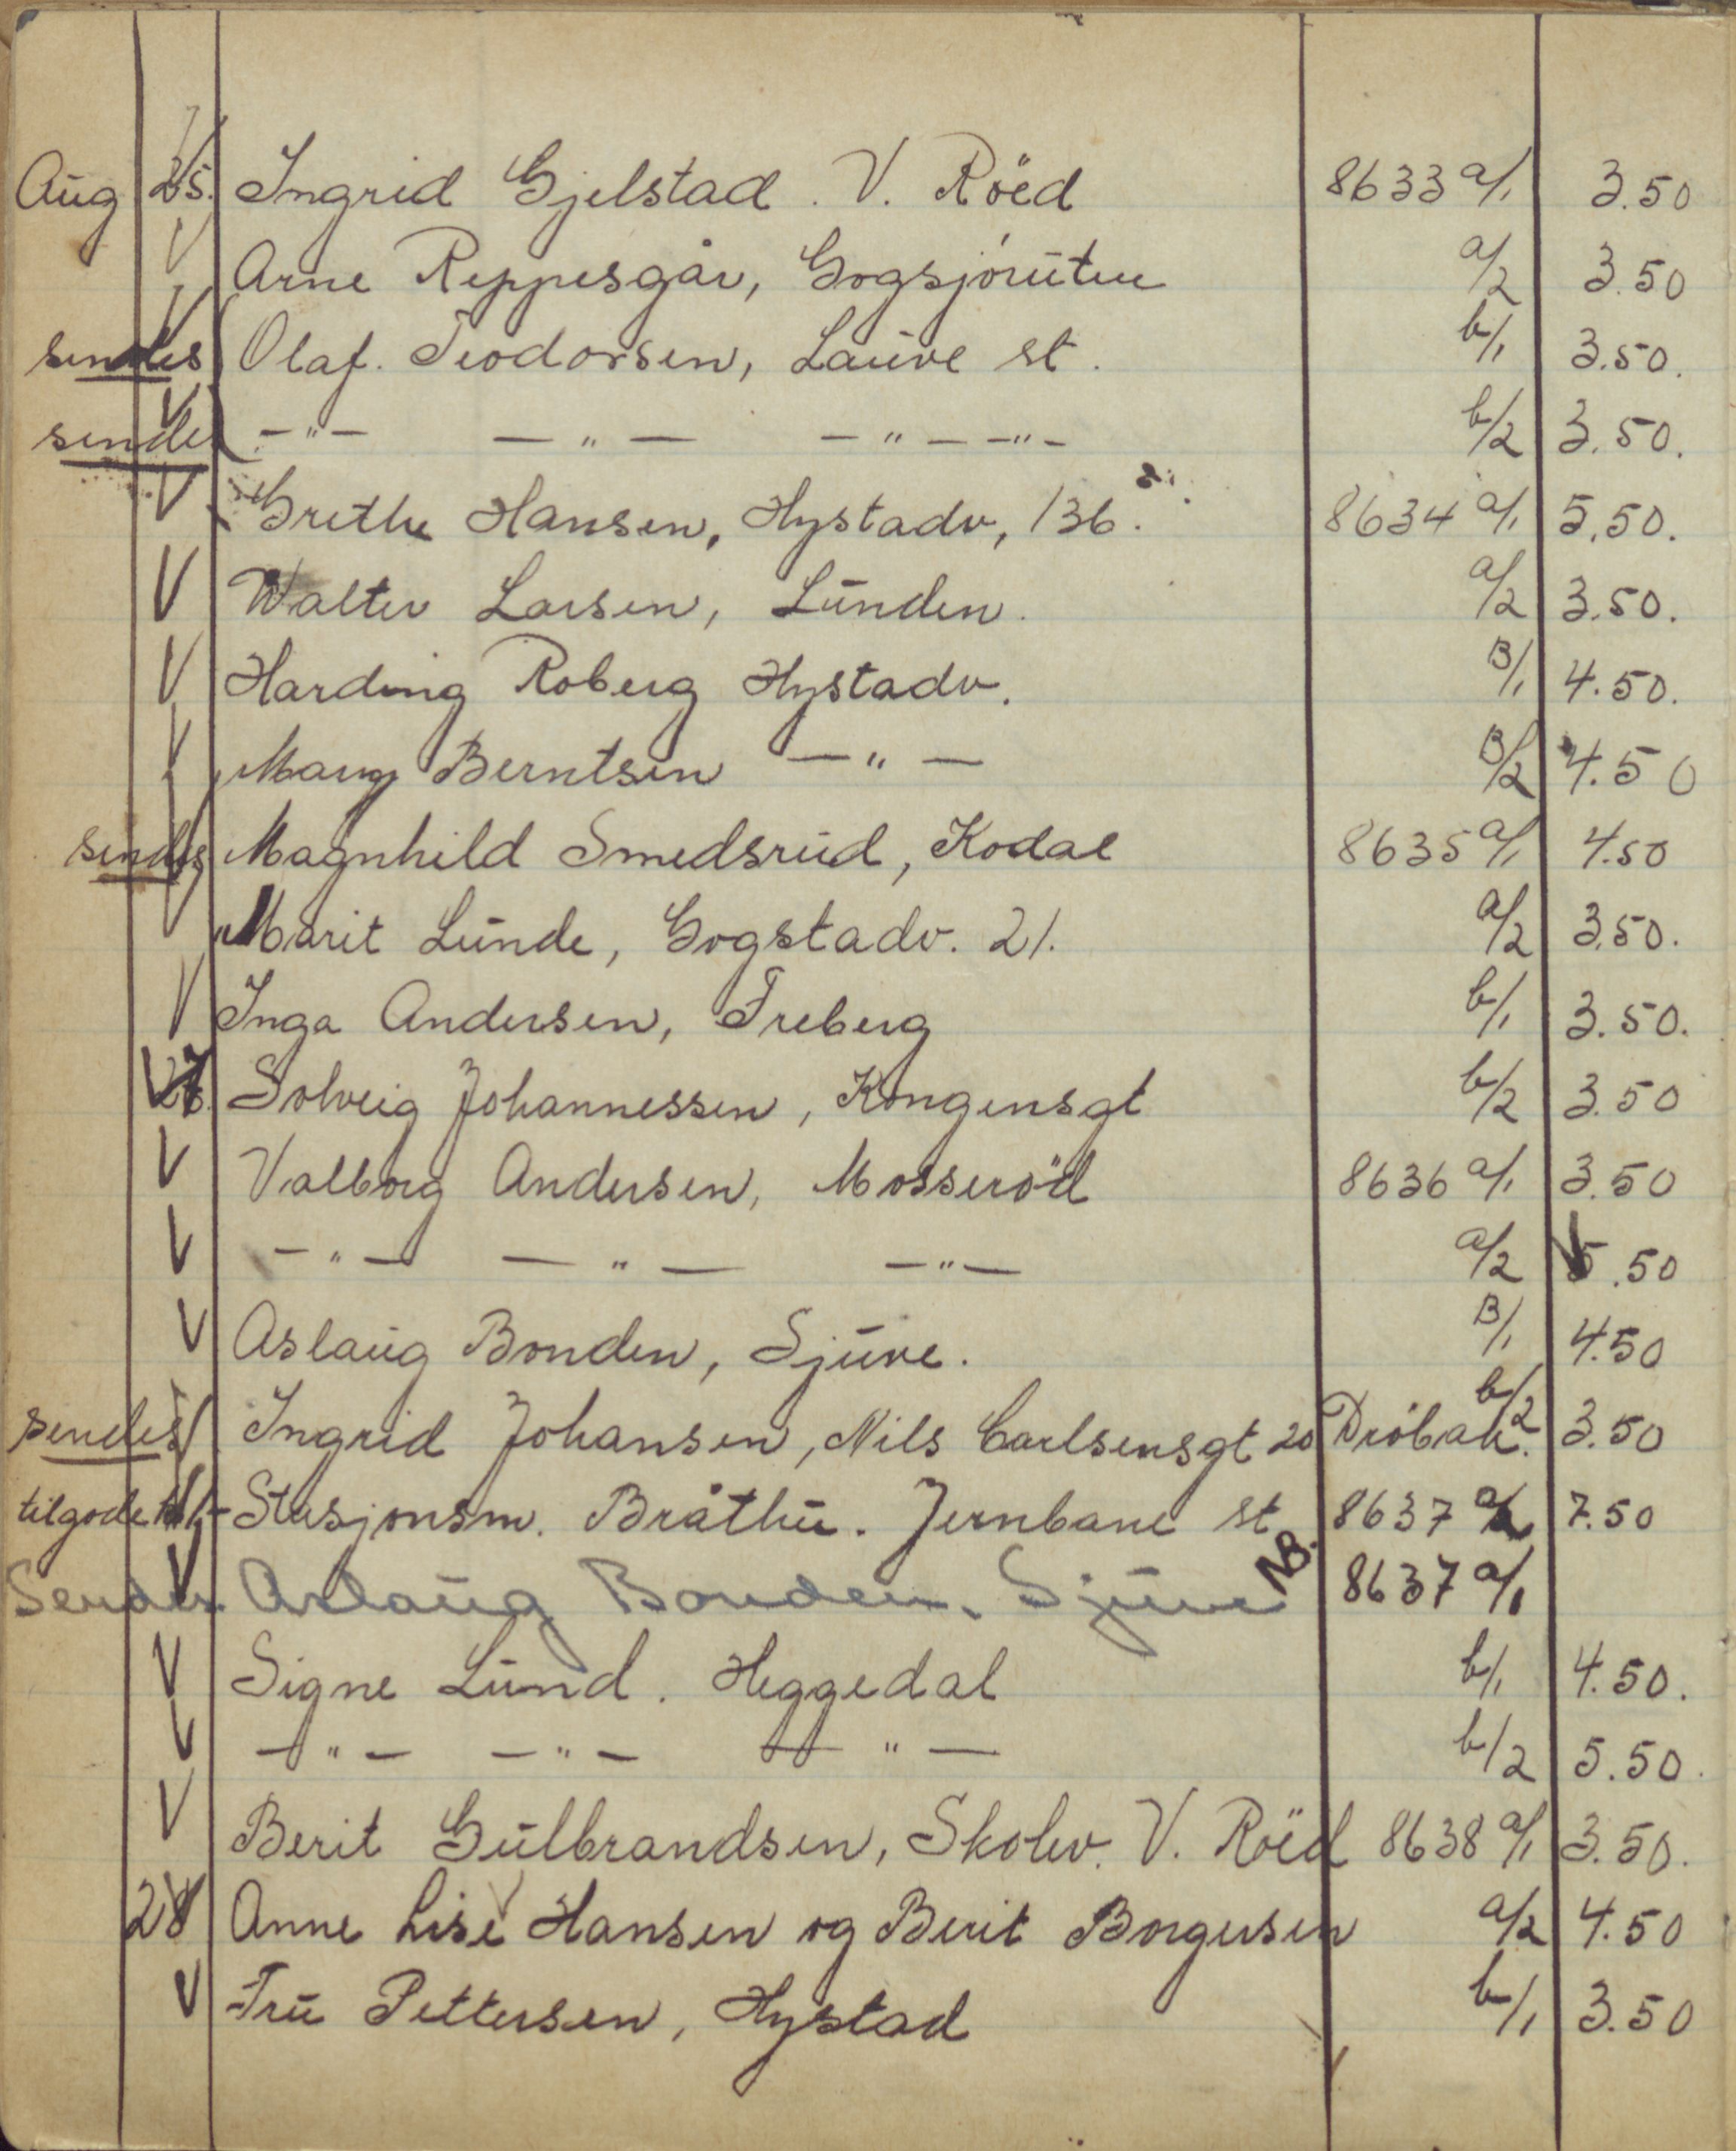 Aug 25. Ingrid Gjelstad. V. Röed 8633 a/1 3.50
V Arne Reppesgår, Gogsjöruten a/2 3.50
sendes V Olaf. Teodorsen, Lauve st. b/1 3.50.
sendes V -"- -"- -"- -"- b/2 3.50.
V Grethe Hansen, Hystadv, 136. 8634 a/1 5.50.
V Walter Larsen, Lunden. a/2 3.50.
V Harding Roberg Hystadv. B/1 4.50.
V Mary Berntsen -"- B/2 4.50
sendes V Magnhild Smedsrud, Kodal 8635 a/1 4.50
V Marit Lunde, Gogstadv. 21. a/2 3.50.
V Inga Andersen, Freberg b/1 3.50.
V Solveig Johannessen, Kongensgt b/2 3.50
V Valborg Andersen, Mosseröd 8636 a/1 3.50
V -"- -"- -"- a/2 5.50
V Aslaug Bonden, Sjuve. B/1 4.50
sendes V Ingrid Johansen, Nils Carlsensgt 20 Dröbak. b/2 3.50
tilgode Stasjonsm. Bråthu. Jernbane st 8637 a/2 7.50
Sendes V Aslaug Bonden. Sjuve NB. 8637 a/1
V Signe Lund. Heggedal b/1 4.50.
V -"- -"- -"- b/2 5.50.
V Berit Gulbrandsen, Skolev. V. Röed 8638 a/1 3.50.
28 Anne Lise Hansen og Berit Borgersen a/2 4.50
V Fru Pettersen, Hystad b/1 3.50